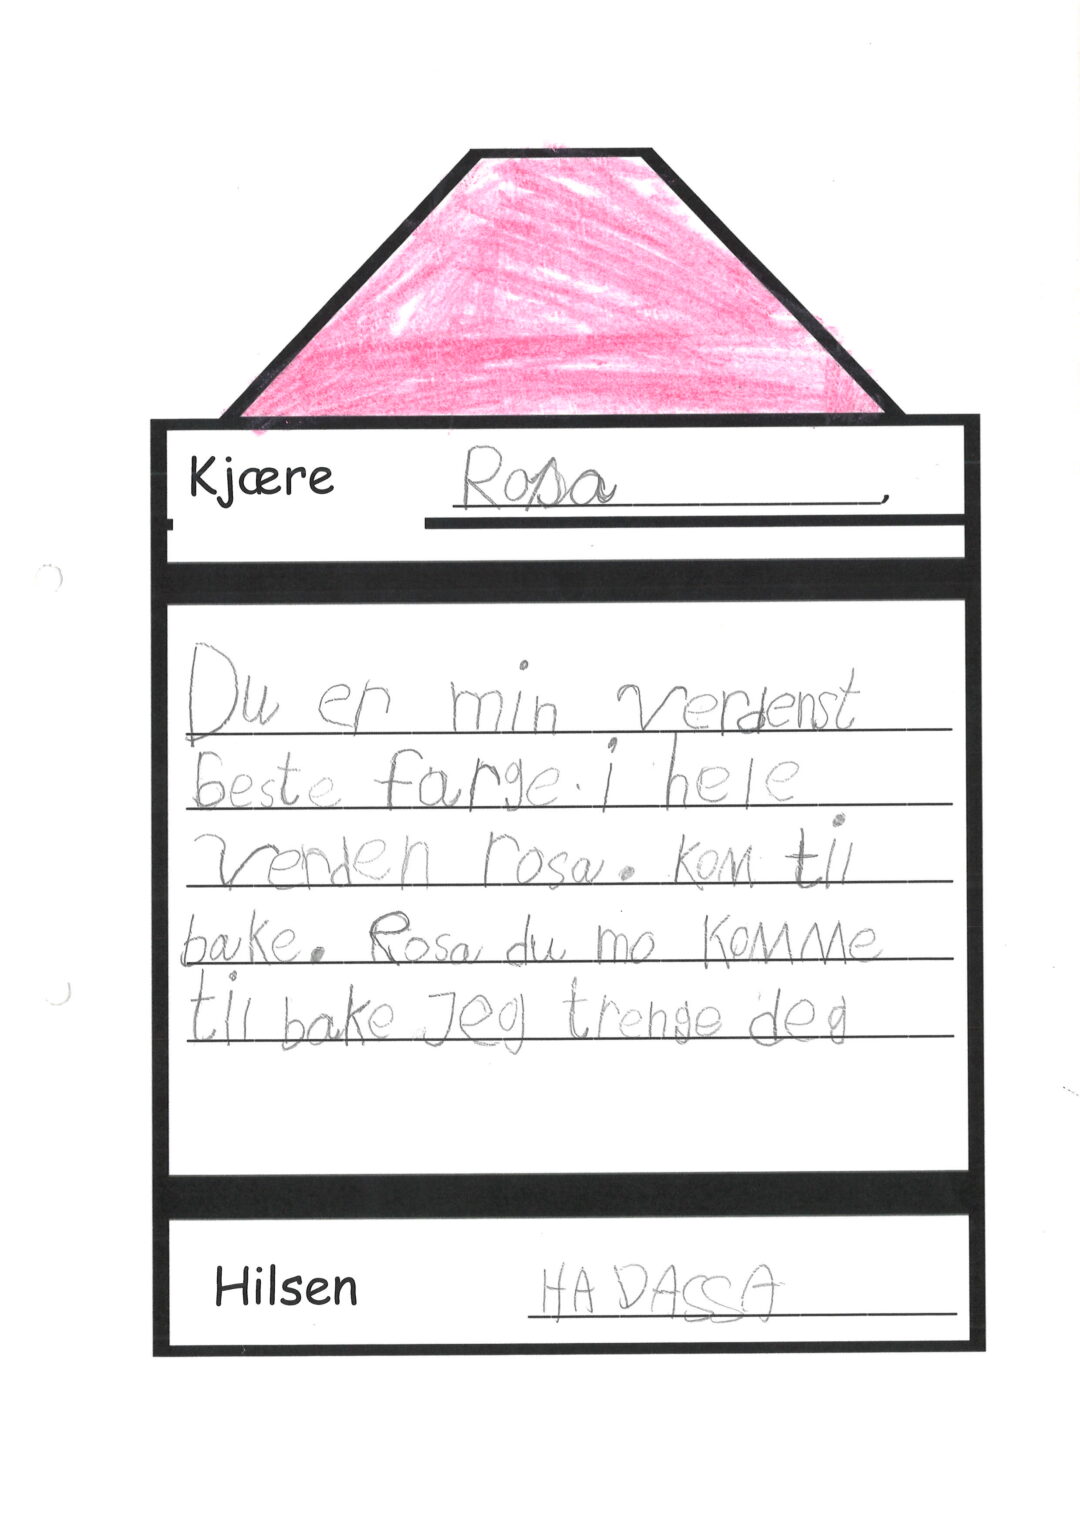 Kjære Rosa,
Du er min verdenst
beste farge. i hele
verden rosa. kom til
bake. Rosa du mo komme
til bake Jeg trenge deg
Hilsen HADASSA